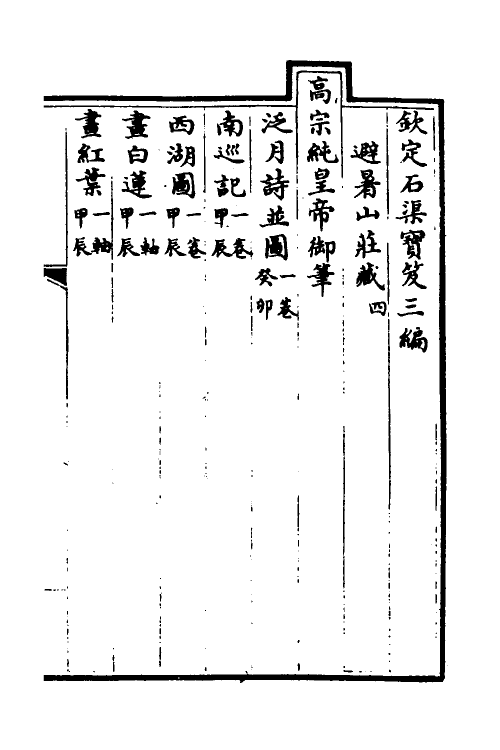 欽定石渠寶笈三編
避暑山莊藏四
高宗純皇帝御筆
泛月詩並圖一卷癸卯
南巡記一卷甲辰
西湖圖一卷甲辰
畫白蓮一軸甲辰
畫紅葉一軸甲辰